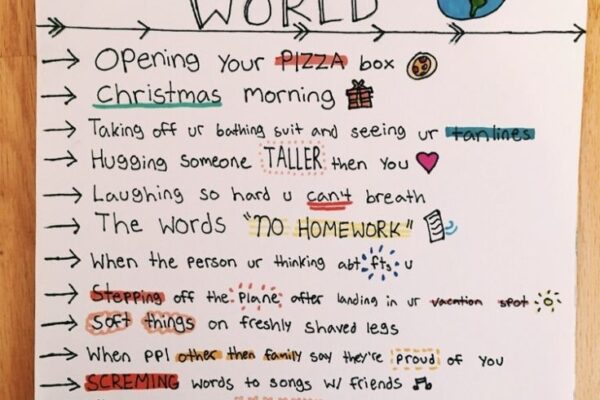 WORLD
Opening your PIZZA box
Christmas morning
Taking off ur bathing suit and seeing ur tanlines
Hugging someone TALLER then you
Laughing so hard u can't breath
The words "NO HOMEWORK"
When the person ur thinking abt fts u
Stepping off the plane after landing in ur vacation spot
Soft things on freshly shaved legs
When ppl other then family say they're proud of you
SCREMING words to songs w/ friends